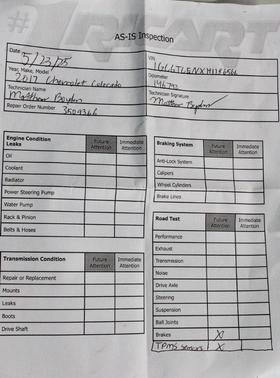 #1 START
AS-IS Inspection
Date 5/23/25
VIN
Year, Make, Model
2017 Chevrolet Colorado
Odometer
146,792
Technician Name
Matthew
Technician Signature
Matthew
Repair Order Number 3509366
Engine Condition
Leaks
Future Attention
Immediate Attention
Oil
Coolant
Radiator
Power Steering Pump
Water Pump
Rack & Pinion
Belts & Hoses
Braking System
Future Attention
Immediate Attention
Anti-Lock System
Calipers
Wheel Cylinders
Brake Lines
Transmission Condition
Future Attention
Immediate Attention
Repair or Replacement
Mounts
Leaks
Boots
Drive Shaft
Road Test
Future Attention
Immediate Attention
Performance
Exhaust
Transmission
Noise
Drive Axle
Steering
Suspension
Ball Joints
Brakes X
TPMS sensors X